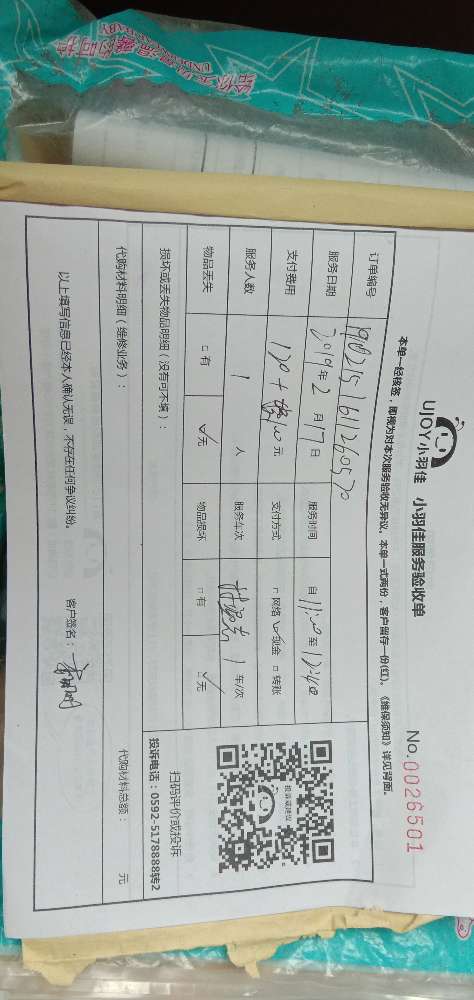 UJOY小羽佳 小羽佳服务验收单
No.0026501
本单一经核签,即视为对本次服务验收无异议。本单一式两份,客户留存一份(红)。《维保须知》详见背面。
订单编号
服务日期 2019年2月17日 服务时间 自11:00至12:40
支付费用 元 支付方式 □网络 ☑现金 □转账
服务人数 1 人 服务车次 1 车/次
物品丢失 □有 ☑无 物品损坏 □有 ☑无
投诉或建议
扫码评价或投诉
投诉电话:0592-5178888转2
损坏或丢失物品明细(没有可不填):
代购材料明细(维修业务): 代购材料总额: 元
以上填写信息已经本人确认无误,不存在任何争议纠纷。 客户签名: